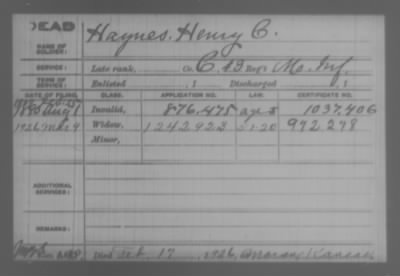 DEAD
Haynes, Henry C.
NAME OF SOLDIER:
SERVICE: Late rank, Co. C, 43 Reg't Mo. Inf.
TERM OF SERVICE: Enlisted , 1 Discharged , 1
DATE OF FILING. CLASS. APPLICATION NO. LAW. CERTIFICATE NO.
Aug Invalid, 876.475 1037.406
1926 Mch 9 Widow, 1242923 5-1-20 972 278
Minor,
ADDITIONAL SERVICES:
REMARKS:
Died Feb. 17, 1926, Kansas